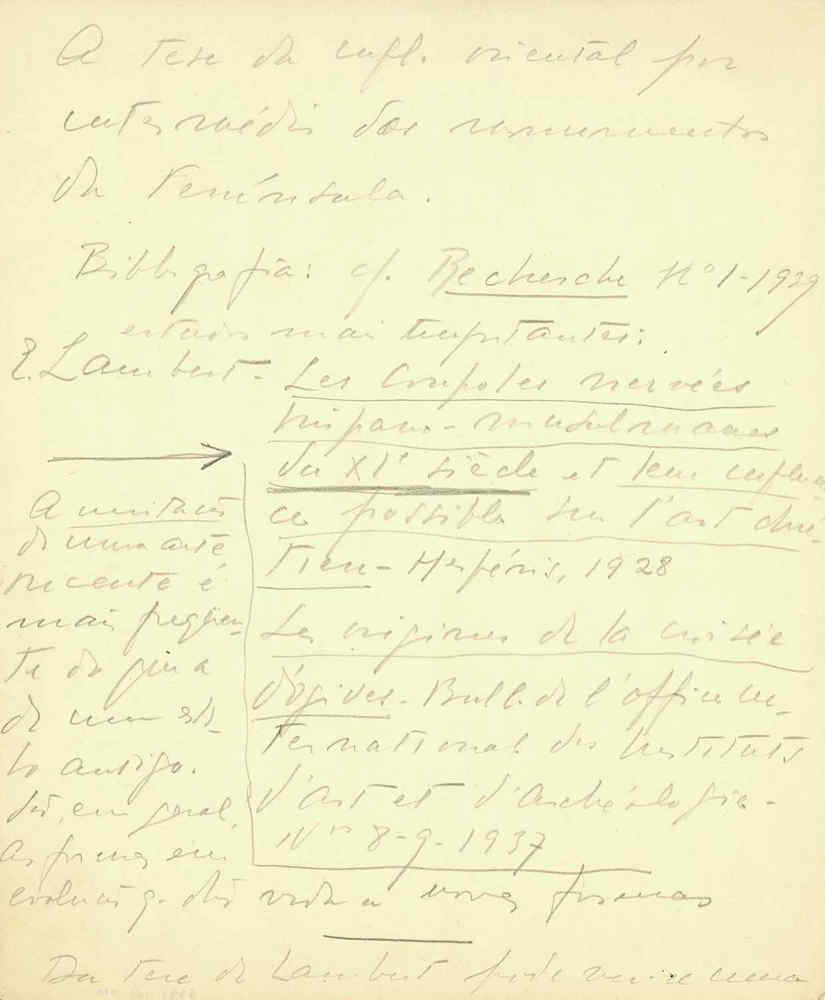 A tese da infl. oriental por
intermédio dos monumentos
da Península.
Bibliografia: cf. Recherche Nº 1-1939
estudos mais importantes:
E. Lambert - Les Coupoles nervées
hispano-musulmanes
du XIe siècle et leur influen-
ce possible sur l'art chré-
tien - Hespéris, 1928
Les origines de la croisée
d'ogives - Bull. de l'office in-
ternational des Instituts
d'art et d'archéologie -
Nos 8-9-1937
A imitação
de uma arte
recente é
mais freqüen-
te do que a
de um esti-
lo antigo.
São, em geral,
as formas em
evolução q. dão vida a novas formas
Da tese de Lambert pode ver-se uma